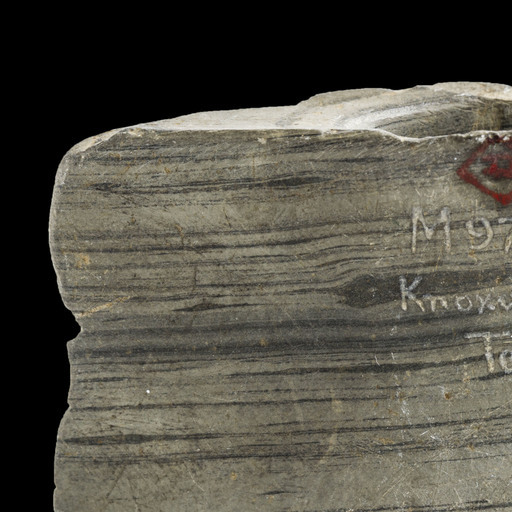 M97
Knoxv
Te